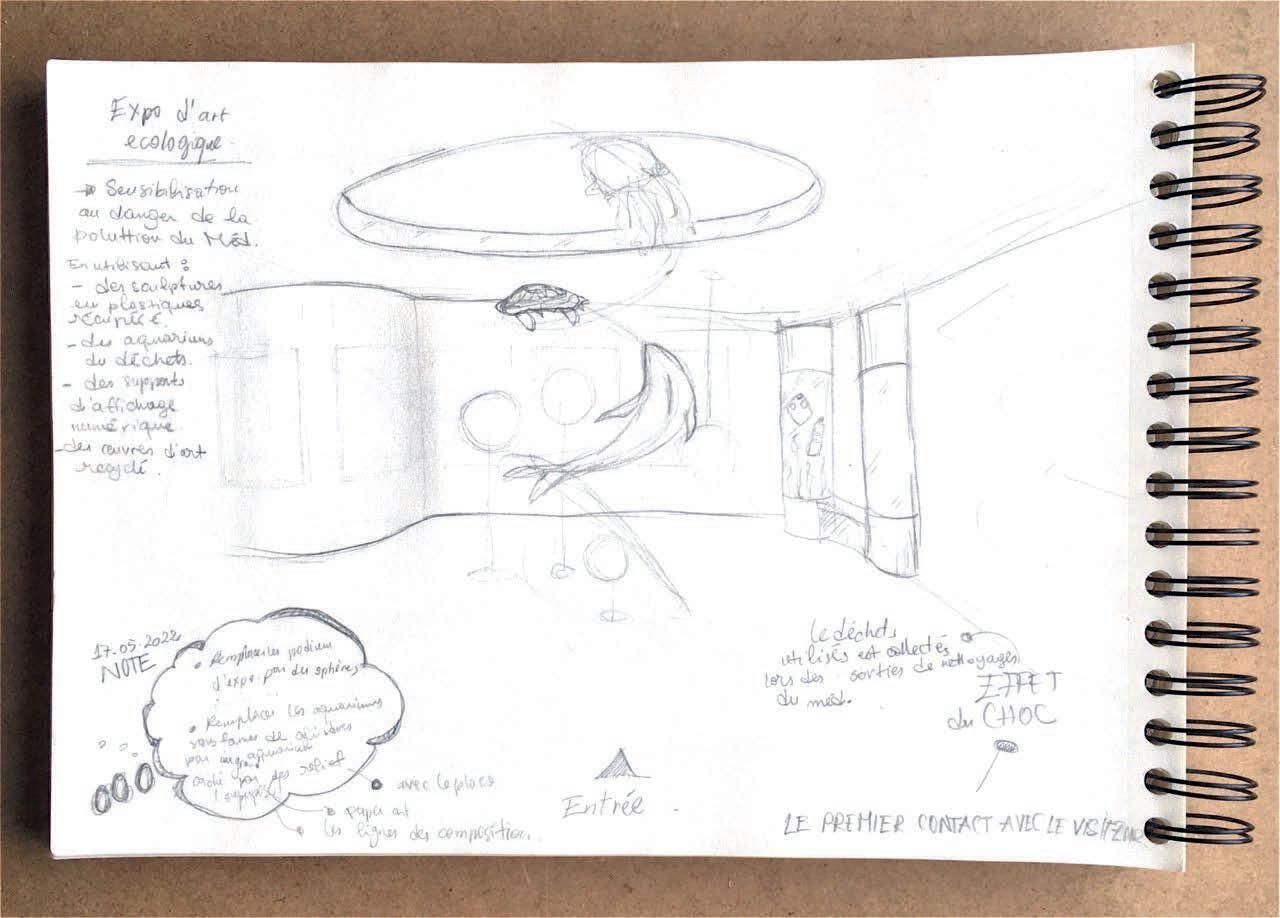 Expo d'art
ecologique
Sensibilisation
au danger de la
poluttion du Méd.
En utilisant :
- des sculptures
en plastiques
récupéré.
- des aquariums
du déchets.
- des supports
d'affichage
numérique.
- des œuvres d'art
recyclé.
17.05.2022
NOTE
Remplacer les podium
d'expo par des sphères
Remplacer les aquariums
sous forme de
par un grand aquarium
par des relief
avec le plexs
papier art
les lignes des composition.
Entrée
Le déchets
utilisés est collectés
lors des sorties de nettoyages
du med.
EFFET
du CHOC
LE PREMIER CONTACT AVEC LE VISITEUR